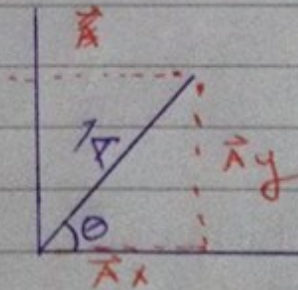 A⃗
θ
A⃗y
A⃗x